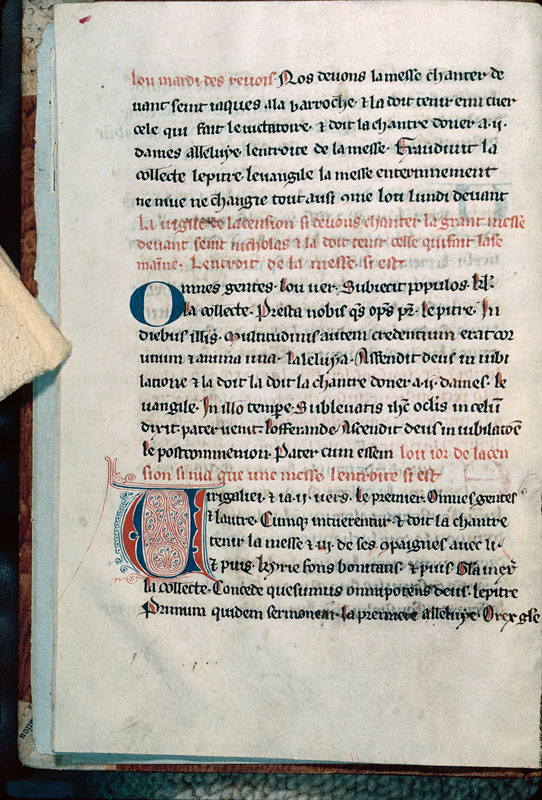 lou mardi des revois Nos devons la messe chanter de
vant seint iaques a la parroche & la doit tenir emi cuer
cele qui fait le victatoire · & doit la chantre doner a · ii ·
dames alleluye · lentroite de la messe · Exaudivit la
collecte lepitre · levangile la messe enterinement
ne mue ne change tout ausi que lou lundi devant
La vigile de lacension si devons chanter la grant messe
devant seint nicholas & la doit tenir celle qui fait la se
maine · Lentroit de la messe · si est
Omnes gentes · lou ver · Subiecit populos · kł
la collecte · Presta nobis qs ops pr · lepitre · In
diebus illis · Multitudinis autem credentium erat cor
unum & anima una · laleluya · Assendit deus in iubi
latione & la doit la doit la chantre doner a · ii · dames · le
vangile · In illo tempe · Sublevatis ihc oclis in celum
dixit · pater venit · lofferande Ascendit deus in iubilatoe
le postcommenion · Pater cum essem lou ior de lacen
sion si nia que une messe lentroite si est
Virigaliei & i a · ii · vers · le premier · Omnes gentes
& lautre · Cumque intuerentur · & doit la chantre
tenir la messe & iii · de ses compaignes avec li ·
& puis · kyrie fons bonitatis · & puis Gla
la collecte · Concede quesumus omnipotens deus · lepitre
Primum quidem sermonem · la premiere alleluye · O rex gle